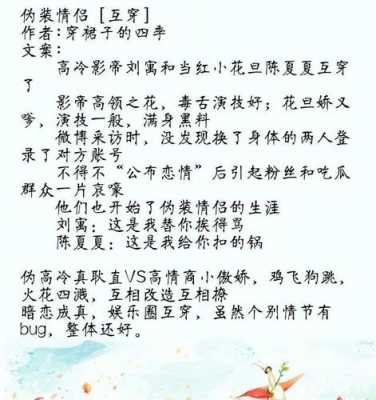 伪装情侣 [互穿]
作者:穿裙子的四季
文案:
高冷影帝刘寓和当红小花旦陈夏夏互穿
了
影帝高领之花，毒舌演技好；花旦娇又
嗲，演技一般，满身黑料
微博采访时，没发现换了身体的两人登
录了对方账号
不得不“公布恋情”后引起粉丝和吃瓜
群众一片哀嚎
他们也开始了伪装情侣的生涯
刘寓：这是我替你挨得骂
陈夏夏：这是我给你扣的锅
伪高冷真耿直VS高情商小傲娇，鸡飞狗跳，
火花四溅，互相改造互相撩
暗恋成真，娱乐圈互穿，虽然个别情节有
bug，整体还好。